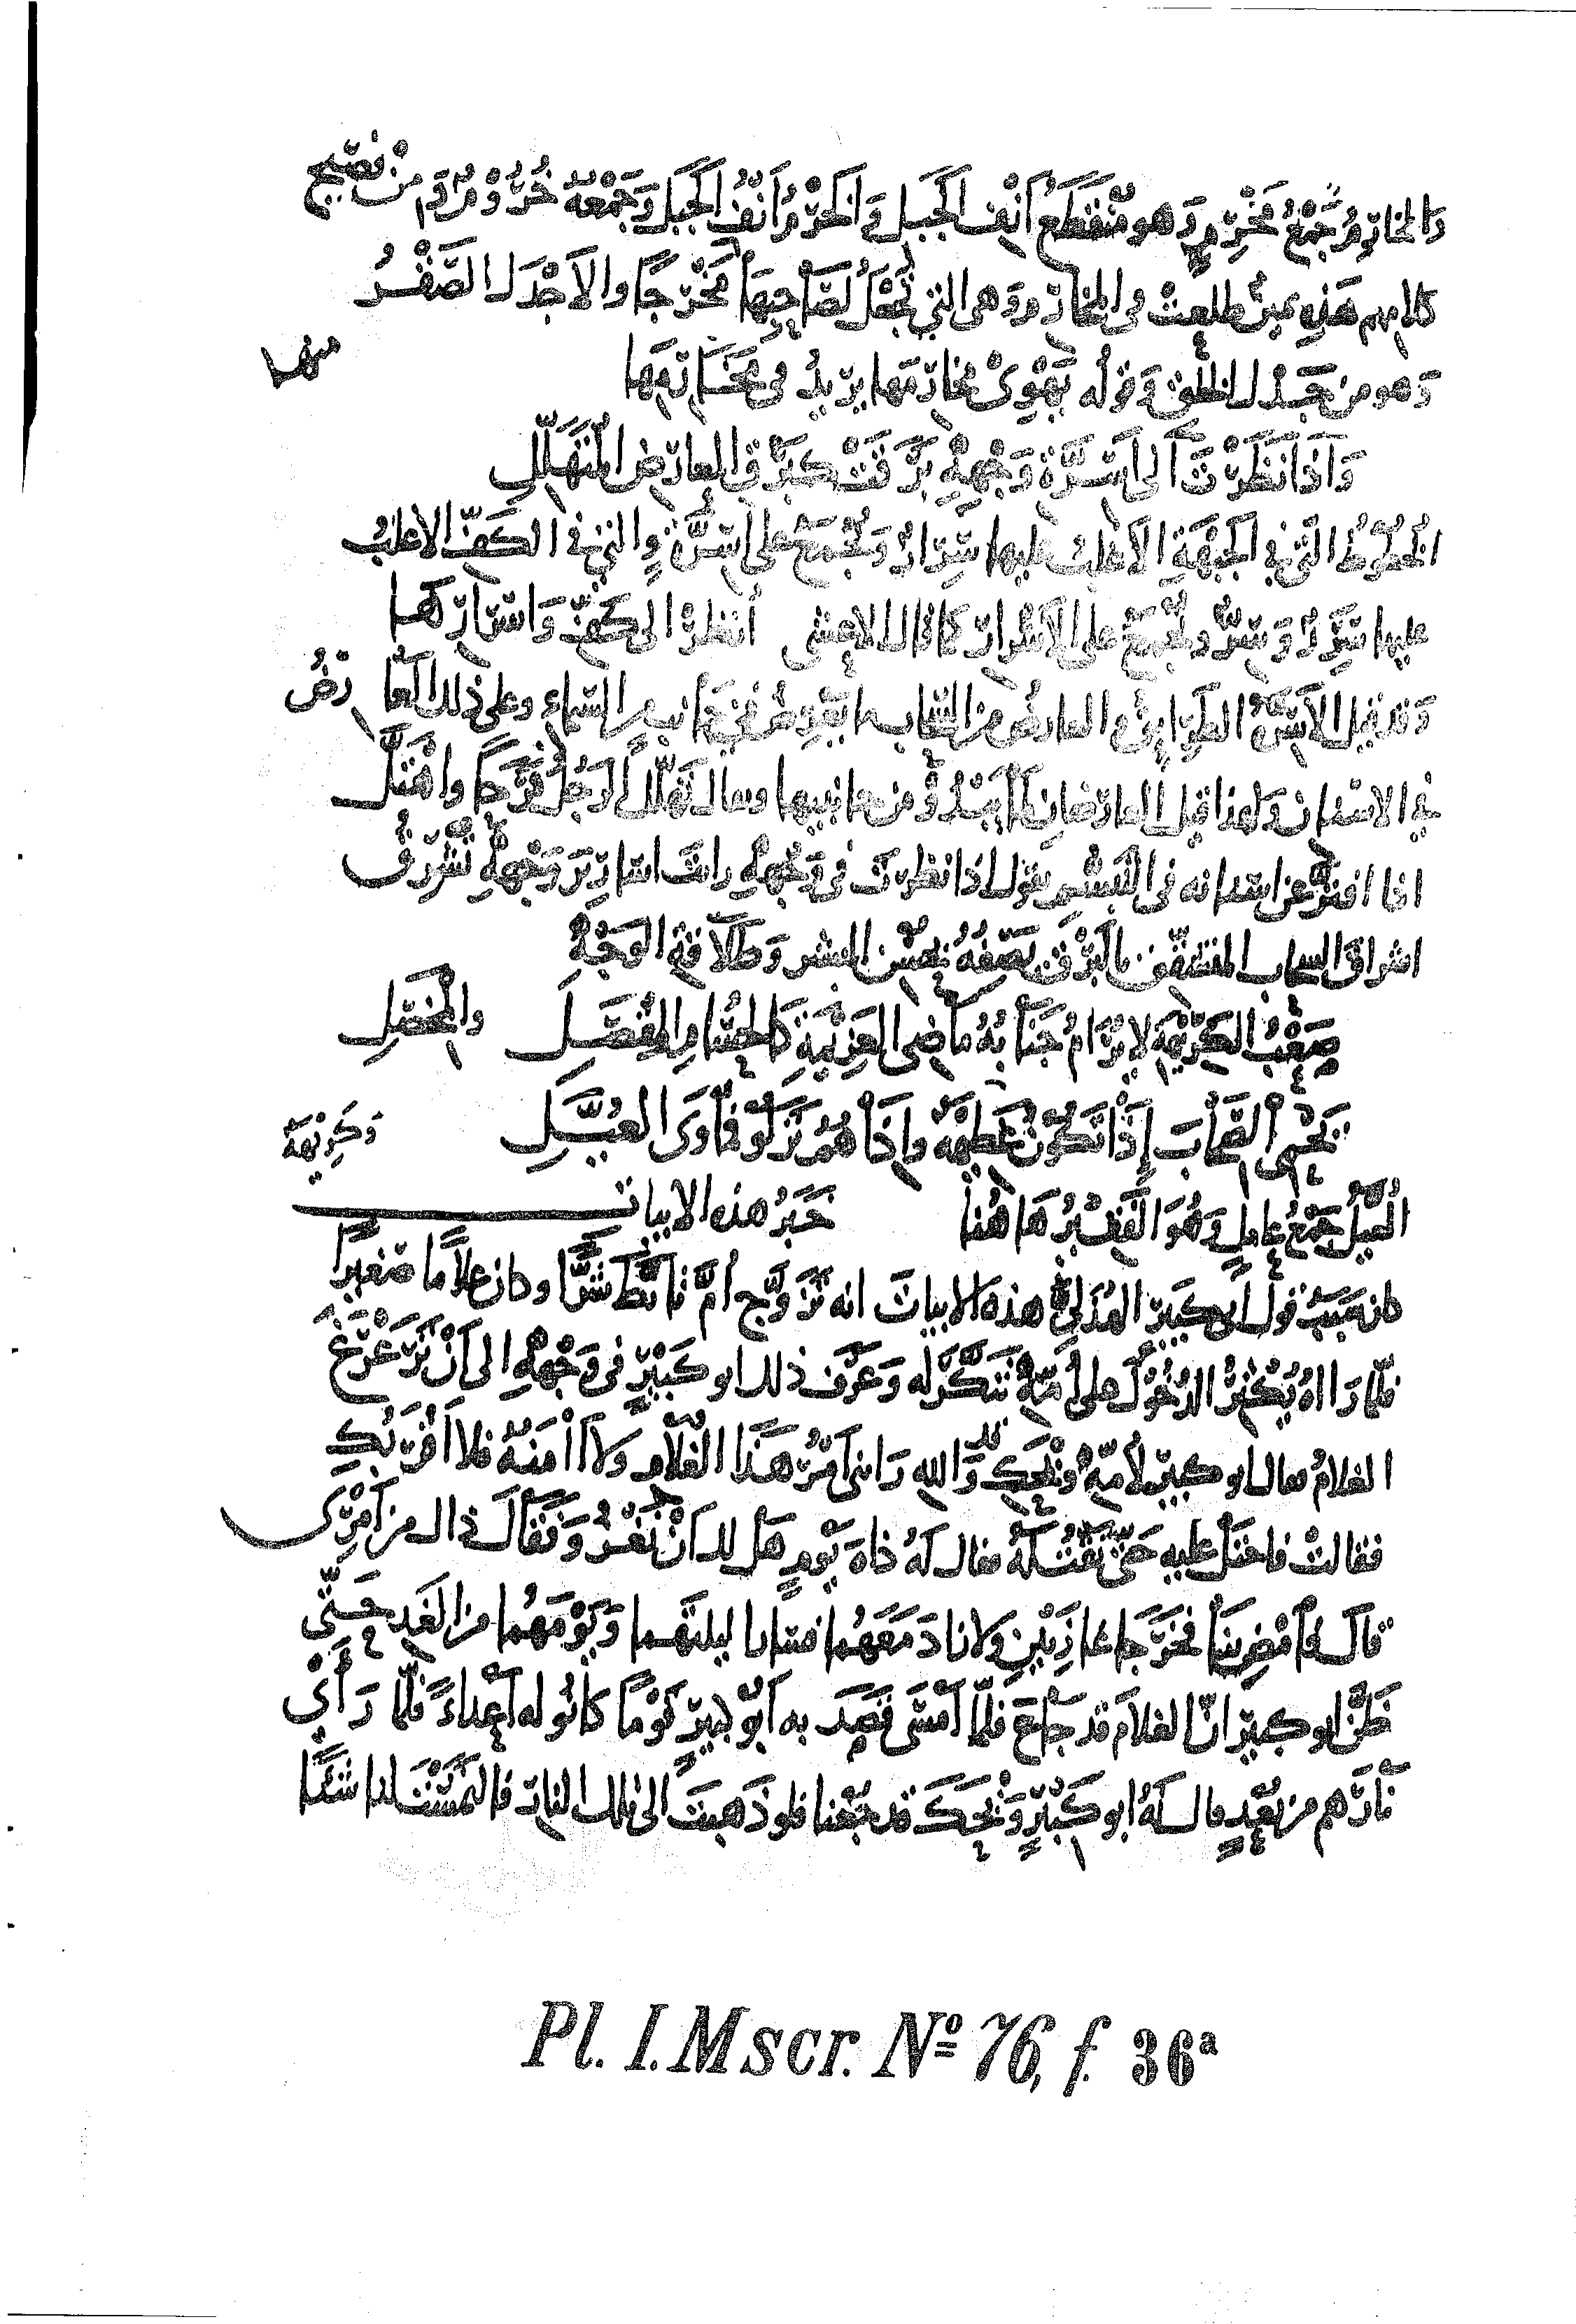 والمخارم جَمْعُ مَخْرِمٍ وَهو مُنْقَطَعُ أَنْفِ الجَبَلِ وَالخَرْمُ أَنْفُ الجَبَلِ وَجَمْعُهُ خُرُومٌ وَمن فَصِيحِ
كلامهم هَذِهِ يمينٌ طلعتْ في المخارم وَهى التي تَجْعَلُ لصَاحِبِهَا مَخْرَجًا والاَجْدَلُ الصَّقْرُ
وَهو من جَدْلِ الخلق وَقوله يَهْوِىْ مخارمَها يريدُ في مَخَارِمِهَا منها
وَاذَا نَظَرْتَ اَلى اَسِرَّةِ وَجْهِهِ بَرَقَتْ كَبَرْقِ العارِضِ المُتَهَلِّلِ
الخُطُوْطُ الّتي في الجَبْهَةِ الاَغلبُ عليها سِرَارٌ وَتُجْمَعُ على اَسِرَّةٍ والتي في الكَفِّ الاغلبُ
عليها سِرَرٌ وَسِرٌّ وتُجْمَعُ على الاَسْرارِ كما قال الاعشى أنظرْ الى كَفٍّ وَاَسْرَارِهَا
وَقد قيل الاَسِرَّةُ الطَرَائِقُ والعارضُ من السَّحَابِ ما يَعْرِضُ في جَانبٍ من السَّماءِ وعلى ذلك العَارِضُ
في الاسنان وَلهذا قيل العارضانِ لما يَبْدُوْ من جانبيها ويقال تَهَلَّلَ الرَجُلُ فَرَحًا واهْتَلَّ
اذا افترَّ عن اسنانه في التَبَسُّمِ يقول اذا نظرتَ في وَجْهِهِ رايتَ اَسَارِيْرَ وَجْهِهِ تُشْرِقُ
اشراقَ السحاب المتشقّق بالبَرْقِ يَصِفُهُ بحُسْنِ البِشْرِ وَطَلاَقَةِ الوَجْهِ
صَعْبُ الكَرِيْهَةِ لا يُرَامُ جَنَابُهُ مَاضِى العَزِيْمَةِ كَالحُسَامِ المِفْصَلِ والمِخْصَلِ
يَحْمِى الصِّحَابَ إِذَا تَكُوْنُ عَظِيْمَةٌ وَإِذَا هُمُ نَزَلُوْا فَمَأْوَى العُيَّلِ وَكَرِيْهَةٌ
العُيَّلُ جَمْعُ عَايِلٍ وَهُوَ الفَقِيْرُ هَا هُنَا خَبَرُ هذه الابيات
كان سَبَبُ قول ابى كَبِيْرٍ الهُذَلِىِّ هذه الابياتَ انه تَزَوَّج أُمَّ تَأَبَّطَ شَرًّا وكان غلاَمًا صَغِيرًا
فلمّا رَااهُ يُكْثِرُ الدُخُوْلَ على أُمِّهِ تَنَكَّرَ له وَعَرَفَ ذلك ابو كَبِيْرٍ فى وَجْهِهِ الى اَنْ تَرَعْرَعَ
الغلامُ فقال ابو كبيرٍ لأُمِّهِ وَيْحَكِ قد وَاللهِ رَابنى اَمْرُ هَذَا الغُلاَمِ وَلاَ اامَنُهُ فلا اَقْرَبُكِ
فقالتْ فاحتَلْ عليه حَتّى تَقْتُلَهُ فقال لَهُ ذاتَ يَوْمٍ هَل لك اَنْ تَغْزُوَ فَقَالَ ذاك من اَمْرِى
قالَ فَامْضِ بِنَا فخَرَجَا غَازِيَيْنِ وَلا زادَ مَعَهُما فسَارا ليلتَهما وَيَوْمَهُما من الغَدِ حَتّى
ظَنَّ ابو كبيرٍ انّ الغلاَمَ قد جَاعَ فلمّا اَمْسَى قَصَدَ به اَبُو كبيرٍ قَوْمًا كَانُو له اَعْدَاءً فلمّا رَأى
نَارَهم من بُعْدٍ قال لَهُ ابو كَبِيْرٍ وَيْحَكَ قد جُعْنا فلو ذَهبتَ الى تلك النارِ فالتَمَسْتَ لنا شَيْئًا
Pl. I. Mscr. Nº 76, f. 36ª